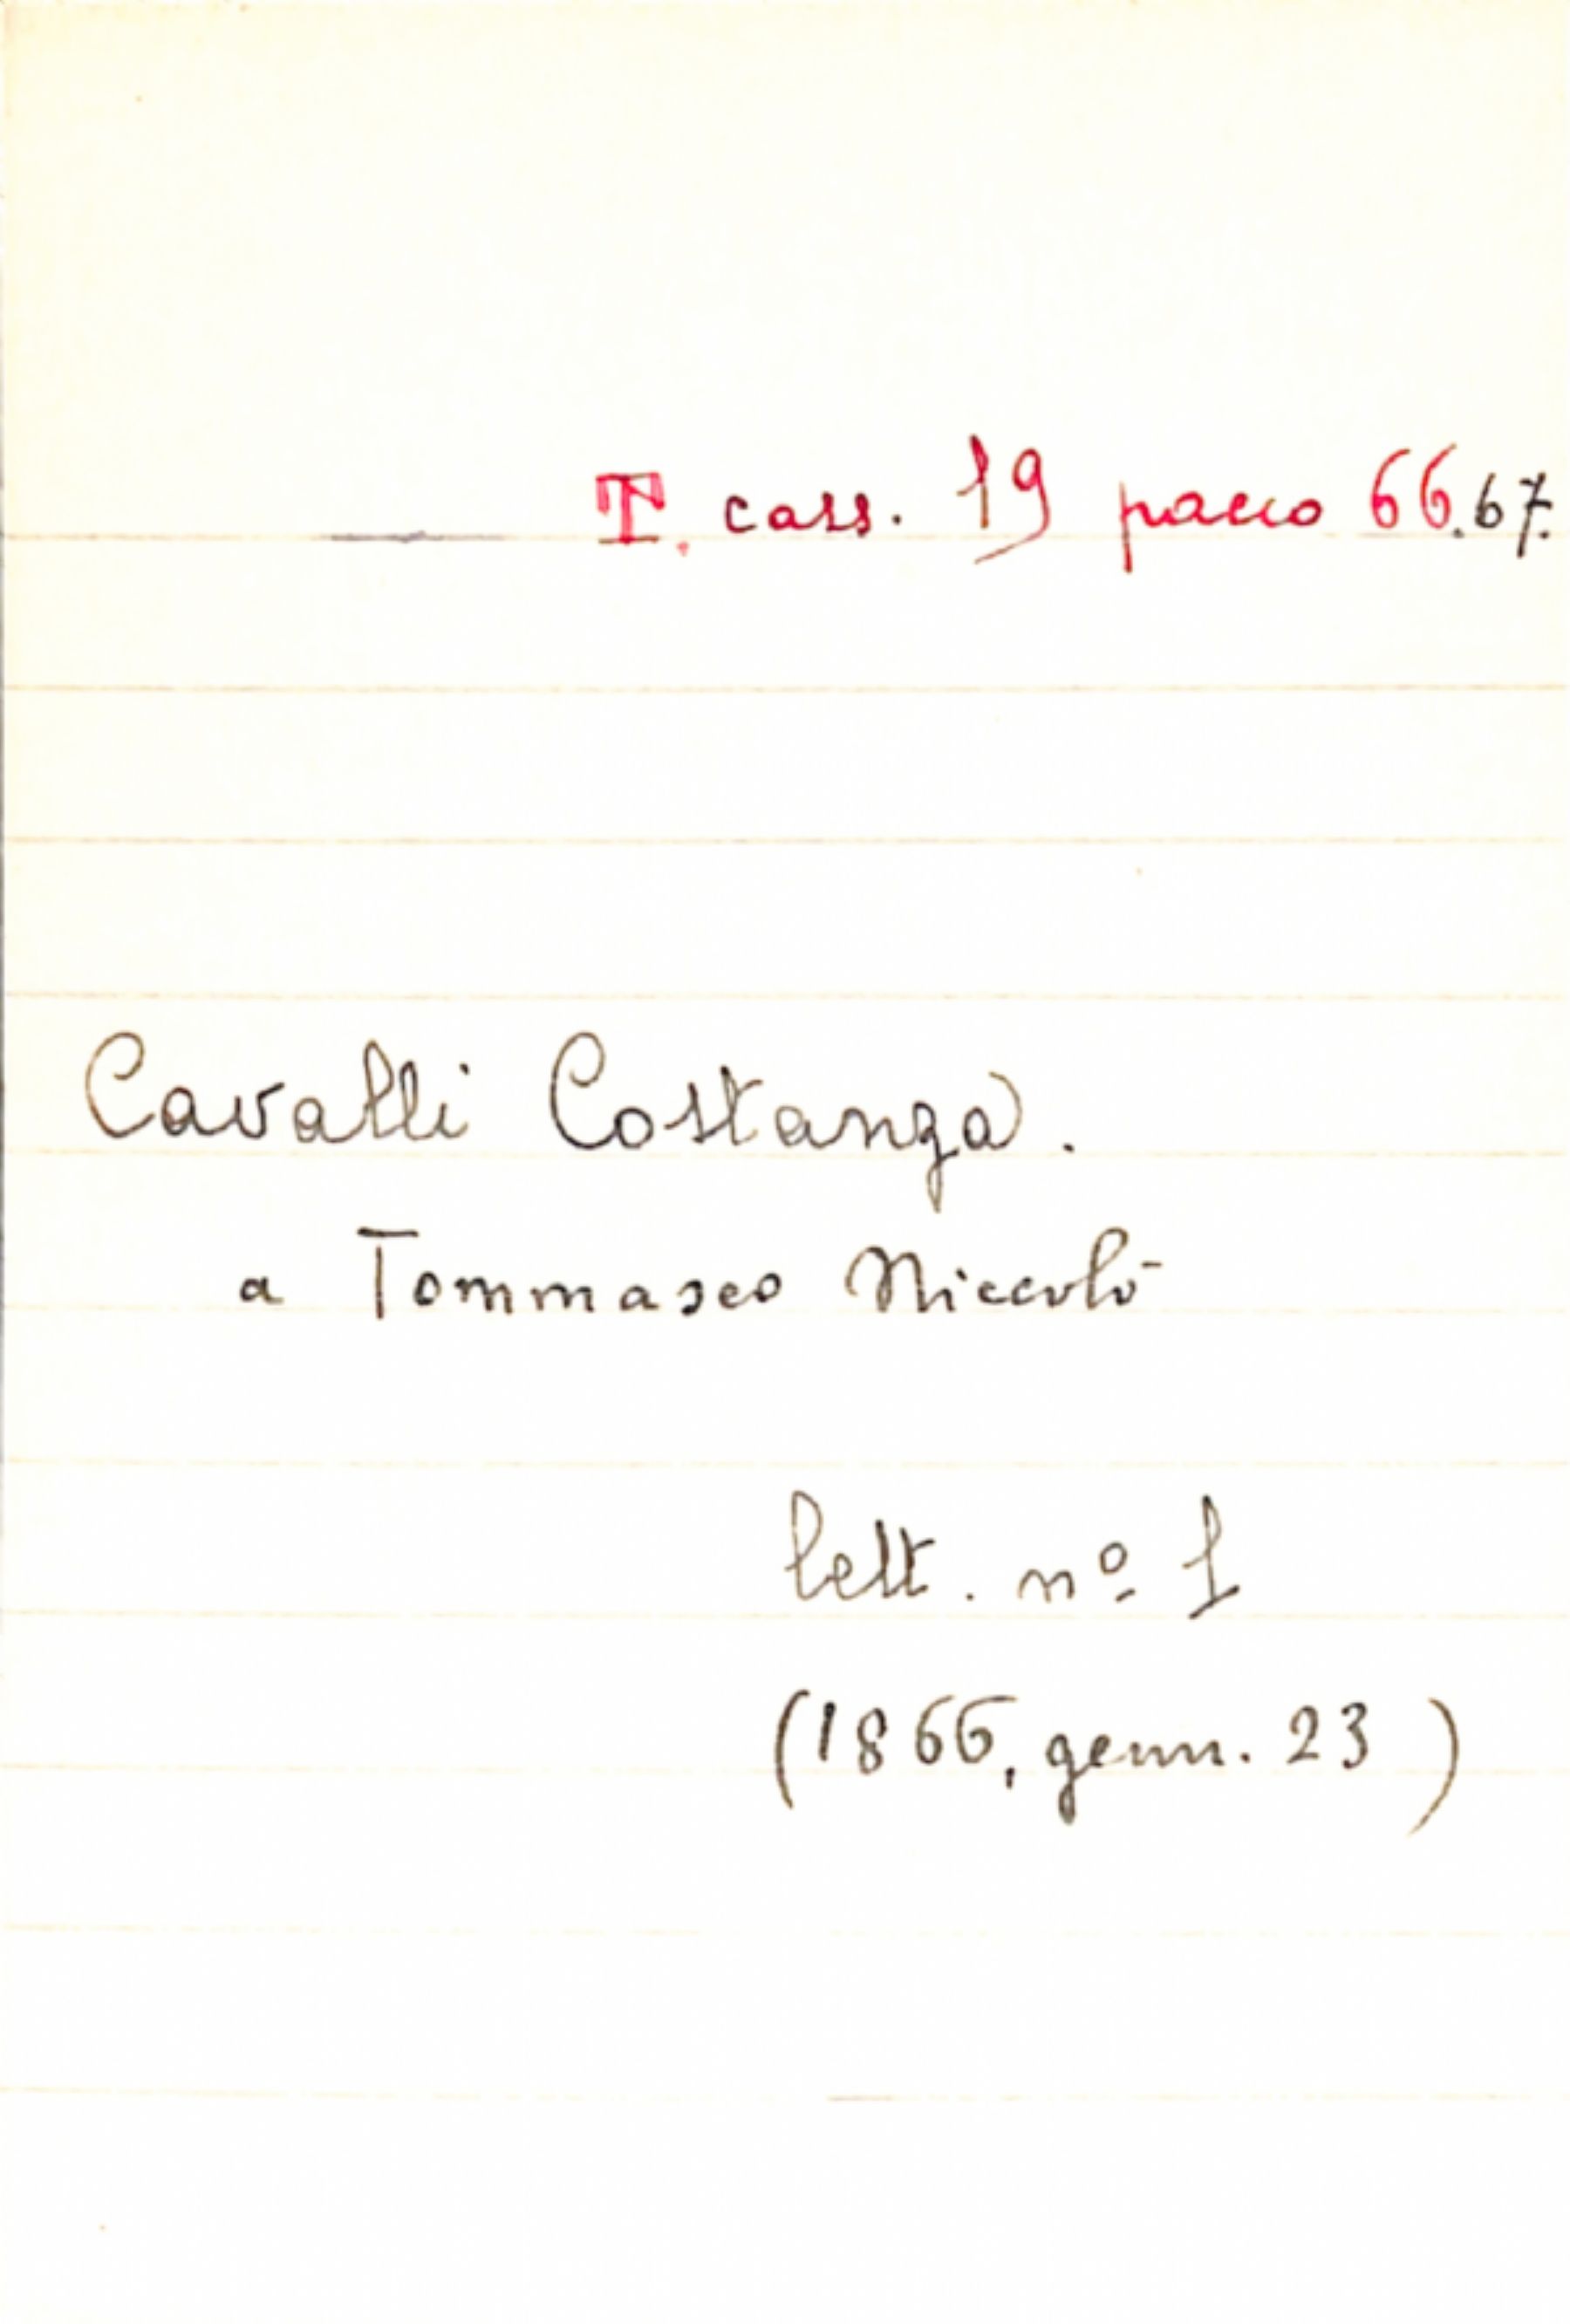 T. cass. 19 pacco 66.67.
Cavalli Costanza.
a Tommaseo Niccolò
lett. nº 1
(1866, genn. 23)